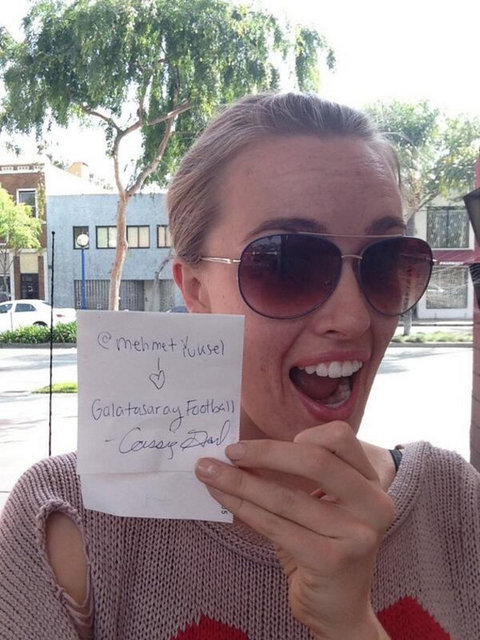 @mehmet Yuksel
Galatasaray Football
- Cassie